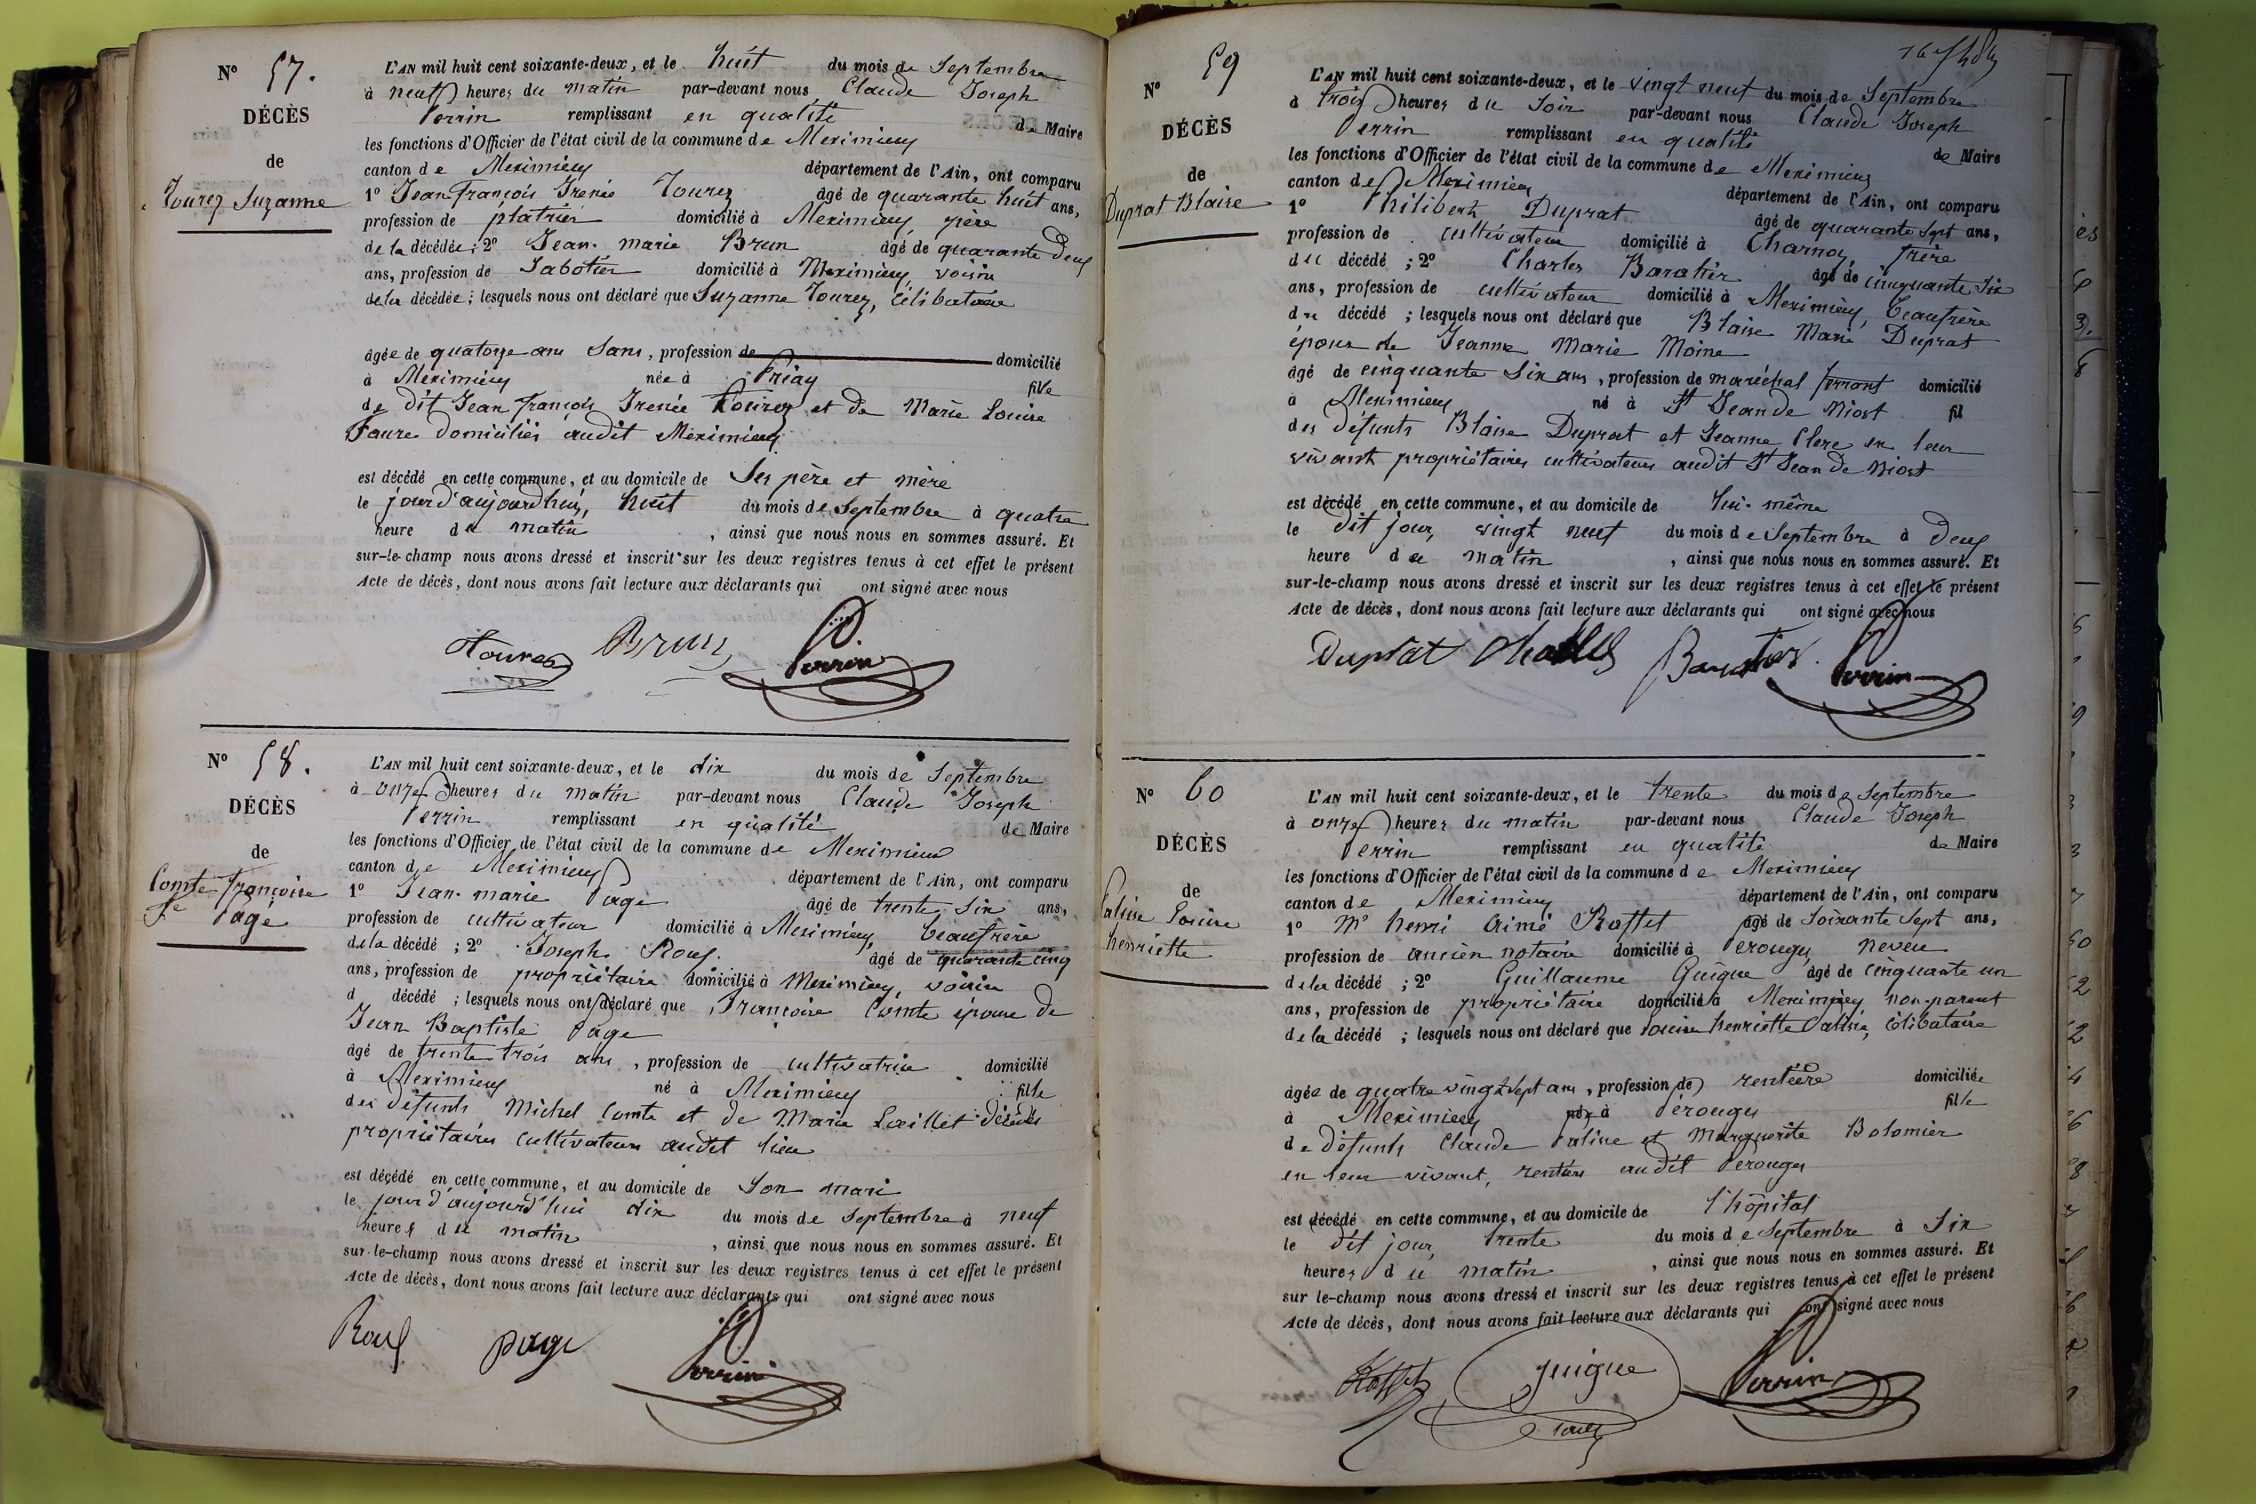 Nº 57.
DÉCÈS
de
Tourez Suzanne
L'AN mil huit cent soixante-deux, et le huit du mois de Septembre
à neuf heures du matin par-devant nous Claude Joseph
Perrin remplissant en qualité de Maire
les fonctions d'Officier de l'état civil de la commune de Meximieux
canton de Meximieux département de l'Ain, ont comparu
1º Jean françois Irenée Tourez âgé de quarante huit ans,
profession de platrier domicilié à Meximieux père
de la décédée; 2º Jean-marie Brun âgé de quarante deux
ans, profession de Sabotier domicilié à Meximieux, voisin
de la décédée; lesquels nous ont déclaré que Suzanne Tourez, célibataire
âgée de quatorze ans Sans, profession de domicilié
à Meximieux née à Priay fille
de dit Jean françois Irenée Tourez et de Marie Louise
Faure domiciliés audit Meximieux
est décédé en cette commune, et au domicile de Ses père et mère
le jourd'aujourdhui, huit du mois de Septembre à quatre
heure du matin, ainsi que nous nous en sommes assuré. Et
sur-le-champ nous avons dressé et inscrit sur les deux registres tenus à cet effet le présent
Acte de décès, dont nous avons fait lecture aux déclarants qui ont signé avec nous
Tourez Brun Perrin
Nº 58.
DÉCÈS
de
Comte françoise
fe Page
L'AN mil huit cent soixante-deux, et le dix du mois de Septembre
à onze heures du matin par-devant nous Claude Joseph
Perrin remplissant en qualité de Maire
les fonctions d'Officier de l'état civil de la commune de Meximieux
canton de Meximieux département de l'Ain, ont comparu
1º Jean-marie Page âgé de trente Six ans,
profession de cultivateur domicilié à Meximieux, beaufrère
de la décédé; 2º Joseph Roux âgé de quarante cinq
ans, profession de propriétaire domicilié à Meximieux, voisin
d décédé; lesquels nous ont déclaré que Françoise Comte épouse de
Jean Baptiste Page
âgé de trente trois ans, profession de cultivatrice domicilié
à Meximieux né à Meximieux fille
des défunts Michel Comte et de Marie Laillet décédés
propriétaires cultivateurs audit lieu
est décédé en cette commune, et au domicile de Son mari
le jour d'aujourd'hui dix du mois de Septembre à neuf
heures du matin, ainsi que nous nous en sommes assuré. Et
sur-le-champ nous avons dressé et inscrit sur les deux registres tenus à cet effet le présent
Acte de décès, dont nous avons fait lecture aux déclarants qui ont signé avec nous
Roux page Perrin
Nº 59
DÉCÈS
de
Duprat Blaise
L'AN mil huit cent soixante-deux, et le vingt neuf du mois de Septembre
à trois heures du Soir par-devant nous Claude Joseph
Perrin remplissant en qualité de Maire
les fonctions d'Officier de l'état civil de la commune de Meximieux
canton de Meximieux département de l'Ain, ont comparu
1º Philibert Duprat âgé de quarante Sept ans,
profession de cultivateur domicilié à Charnoz, frère
du décédé; 2º Charles Baratier âgé de cinquante Six
ans, profession de cultivateur domicilié à Meximieux, beaufrère
du décédé; lesquels nous ont déclaré que Blaise Marie Duprat
époux de Jeanne Marie Moine
âgé de cinquante Six ans, profession de maréchal ferrant domicilié
à Meximieux né à St Jean de Niost fil
des défunts Blaise Duprat et Jeanne Clerc en leur
vivant propriétaires cultivateurs audit St Jean de Niost
est décédé en cette commune, et au domicile de lui-même
le dit jour, vingt neuf du mois de Septembre à Deux
heure du matin, ainsi que nous nous en sommes assuré. Et
sur-le-champ nous avons dressé et inscrit sur les deux registres tenus à cet effet le présent
Acte de décès, dont nous avons fait lecture aux déclarants qui ont signé avec nous
Duprat Charles Baratier Perrin
Nº 60
DÉCÈS
de
Paline Louise
henriette
L'AN mil huit cent soixante-deux, et le trente du mois de Septembre
à onze heures du matin par-devant nous Claude Joseph
Perrin remplissant en qualité de Maire
les fonctions d'Officier de l'état civil de la commune de Meximieux
canton de Meximieux département de l'Ain, ont comparu
1º Mr henri Aimé Roffet âgé de Soixante Sept ans,
profession de ancien notaire domicilié à Perouges, neveu
de la décédé; 2º Guillaume Guigue âgé de cinquante un
ans, profession de propriétaire domicilié à Meximieux non-parent
de la décédé; lesquels nous ont déclaré que Louise henriette Paline, célibataire
âgée de quatre vingt Sept ans, profession de rentière domiciliée
à Meximieux née à Pérouges fille
de défunts Claude Paline et Marguerite Bolomier
en leur vivant, rentiers audit Pérouges
est décédé en cette commune, et au domicile de l'hôpital
le dit jour, trente du mois de Septembre à Six
heures du matin, ainsi que nous nous en sommes assuré. Et
sur le-champ nous avons dressé et inscrit sur les deux registres tenus à cet effet le présent
Acte de décès, dont nous avons fait lecture aux déclarants qui ont signé avec nous
Roffet guigue Perrin